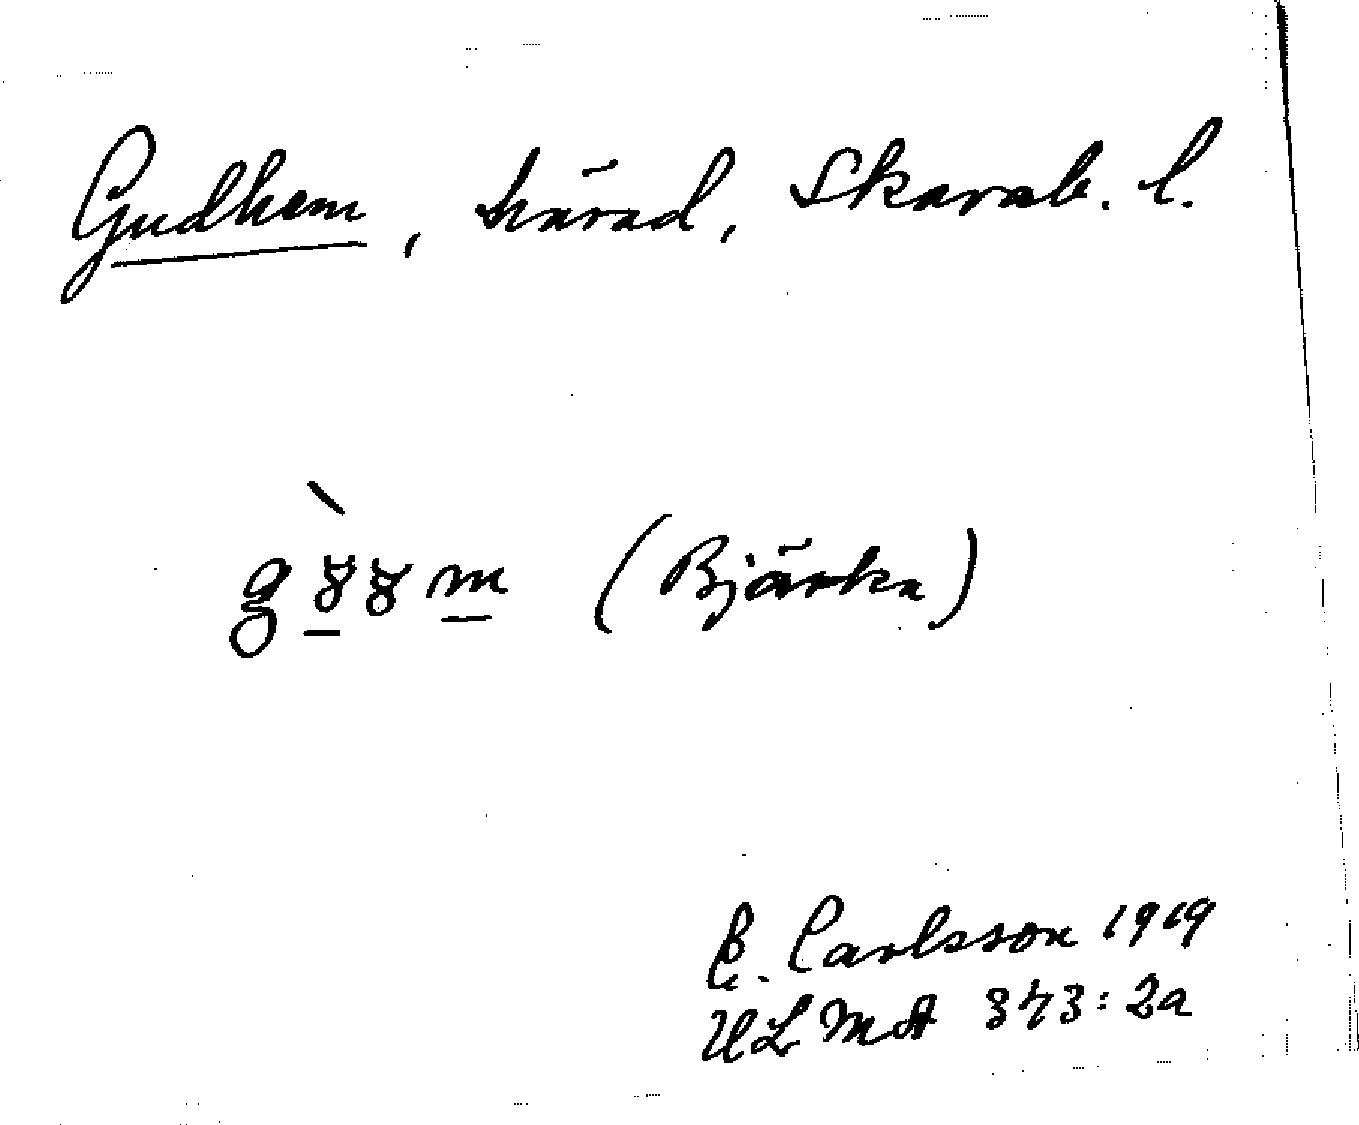 Gudhem, härad, Skarab. l.
(Bjärka)
E. Carlsson 1919
ULMA 373:2a